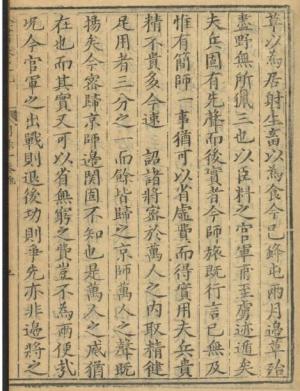 草以為居射生畜以為食今已鋒屯兩月邊草殆
盡野無所獵三也以臣料之官軍甫至虜迹遁矣
夫兵固有先聲而後實者今師旅既行言已無及
惟有簡師一事猶可以省虛費而得實用夫兵貴
精不貴多今速 詔諸將密於萬人之內取精健
足用者三分之一而餘皆歸之京師萬人之聲既
揚矣今密歸京師邊關固不知也是萬人之威猶
在也而其實又可以省無窮之費豈不為兩便哉
况今官軍之出戰則退後功則爭先亦非邊將之